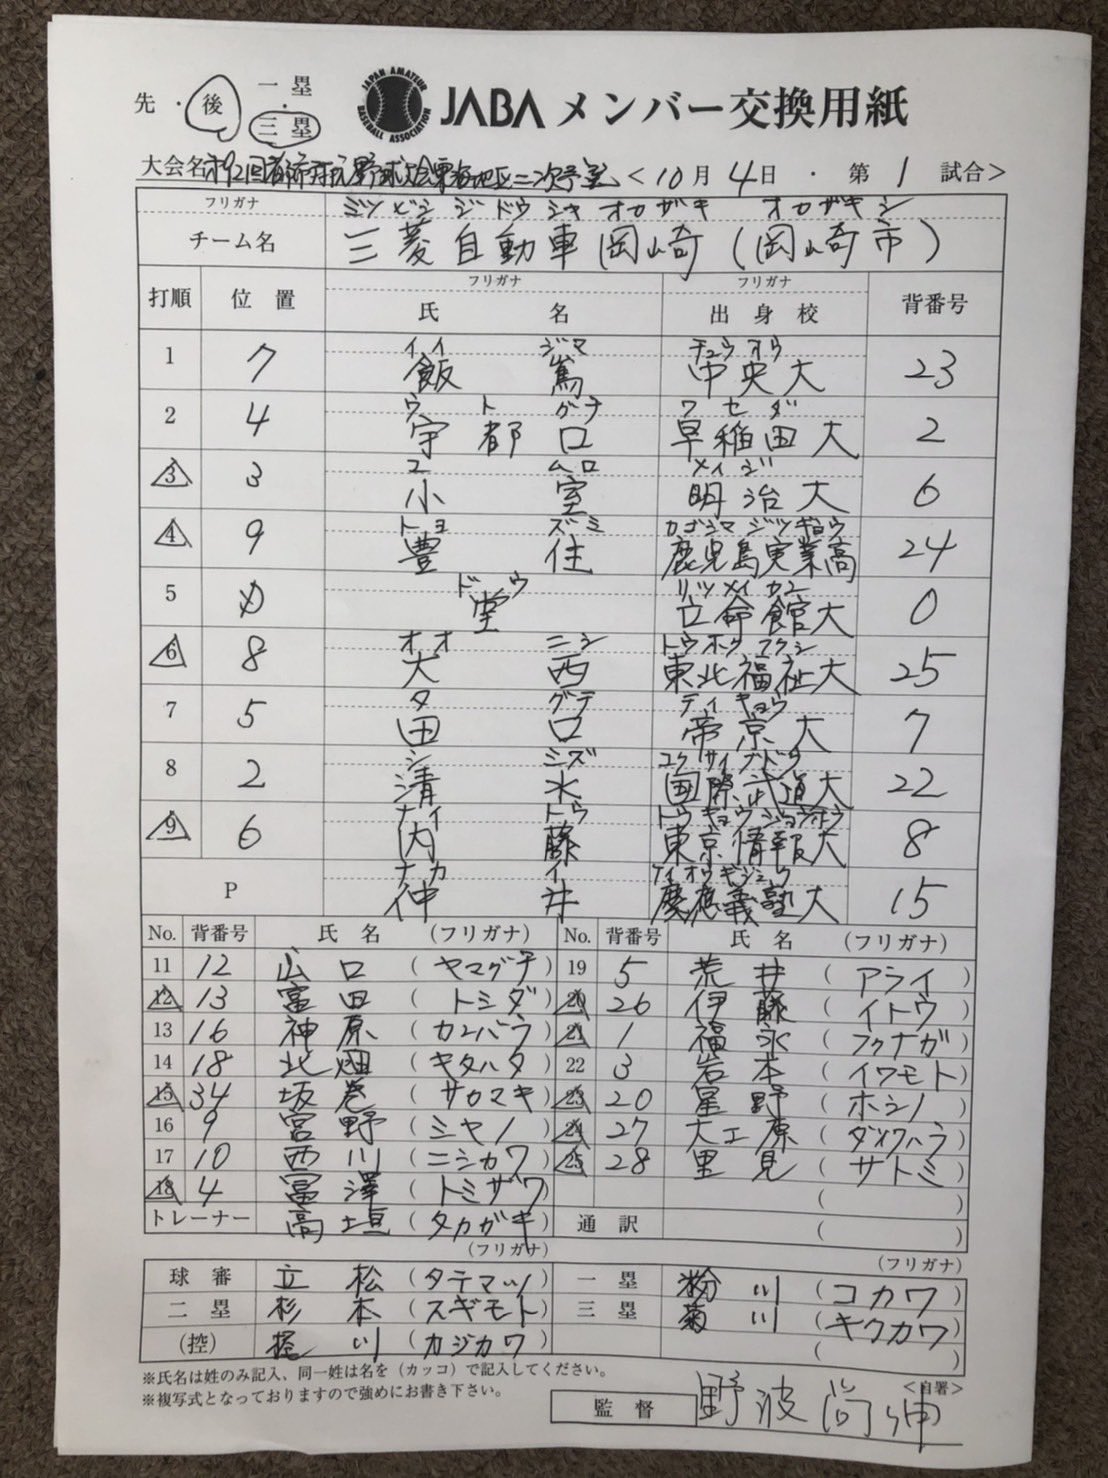 先 ・ 後 一塁 ・ 三塁 JAPAN AMATEUR BASEBALL ASSOCIATION JABA メンバー交換用紙
大会名 第92回都市対抗野球大会東海地区二次予選 < 10月 4日 ・ 第 1 試合>
フリガナ ミツビシ ジドウシャ オカザキ オカザキシ
チーム名 三菱自動車岡崎(岡崎市)
フリガナ フリガナ
打順 位置 氏名 出身校 背番号
イイ ジマ チュウオウ
1 7 飯 嶌 中央大 23
ウ ト グチ ワセダ
2 4 宇都口 早稲田大 2
コ ムロ メイジ
3 3 小 室 明治大 6
トヨ ズミ カゴシマ ジツギョウ
4 9 豊 住 鹿児島実業高 24
ドウ リツメイカン
5 D 堂 立命館大 0
オオ ニシ トウホクフクシ
6 8 大 西 東北福祉大 25
タ グチ テイキョウ
7 5 田 口 帝京大 7
シ ミズ コクサイブドウ
8 2 清 水 国際武道大 22
ナイ トウ トウキョウジョウホウ
9 6 内 藤 東京情報大 8
ナカ イ ケイオウギジュク
P 仲 井 慶應義塾大 15
No. 背番号 氏名 (フリガナ) No. 背番号 氏名 (フリガナ)
11 12 山口 (ヤマグチ) 19 5 荒井 (アライ)
12 13 富田 (トミダ) 20 26 伊藤 (イトウ)
13 16 神原 (カンバラ) 21 1 福永 (フクナガ)
14 18 北畑 (キタハタ) 22 3 岩本 (イワモト)
15 34 坂巻 (サカマキ) 23 20 星野 (ホシノ)
16 9 宮野 (ミヤノ) 24 27 大工原 (ダイクハラ)
17 10 西川 (ニシカワ) 25 28 里見 (サトミ)
18 4 冨澤 (トミザワ) ( )
トレーナー 高垣 (タカガキ) 通訳 ( )
(フリガナ) (フリガナ)
球審 立松 (タテマツ) 一塁 粉川 (コカワ)
二塁 杉本 (スギモト) 三塁 菊川 (キクカワ)
(控) 梶川 (カジカワ) ( )
※氏名は姓のみ記入、同一姓は名を(カッコ)で記入してください。
※複写式となっておりますので強めにお書き下さい。
<自署>
監督 野波尚伸